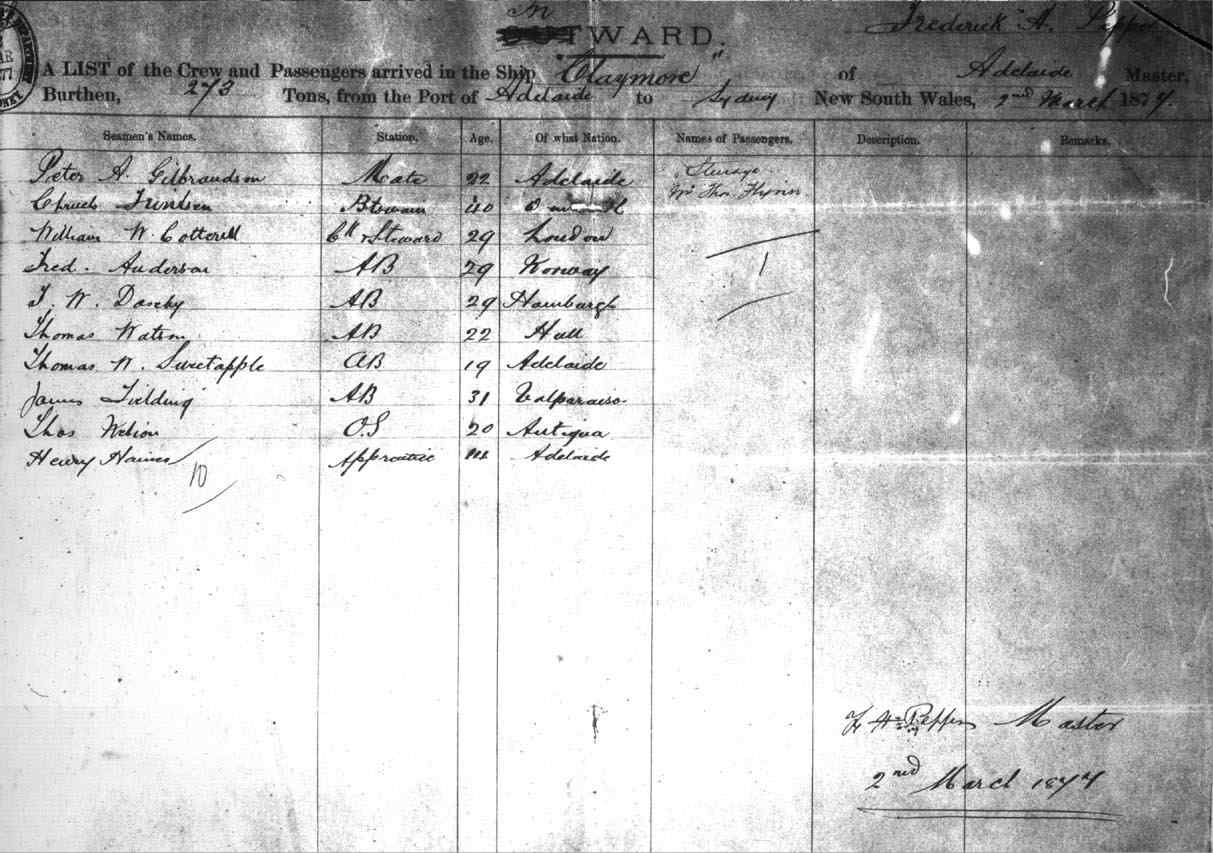 In
OUTWARD.
Frederick A.
A LIST of the Crew and Passengers arrived in the Ship "Claymore" of Adelaide Master,
Burthen, 273 Tons, from the Port of Adelaide to Sydney New South Wales, 2nd March 1877.
Seamen's Names. Station. Age. Of what Nation. Names of Passengers. Description. Remarks.
Peter A. Gilbrandson Mate 22 Adelaide Steerage
Mr Thos Flynn
40
William W. Cotterell Ck & Steward 29 London
Fred. Anderson AB 29 Norway 1
W. AB 29 Hamburgh
Thomas Watson AB 22 Hull
Thomas W. Sweetapple AB 19 Adelaide
James Fielding AB 31 Valparaiso
Thos O.S 20 Antigua
Henry Haines Apprentice Adelaide
10
Master
2nd March 1877